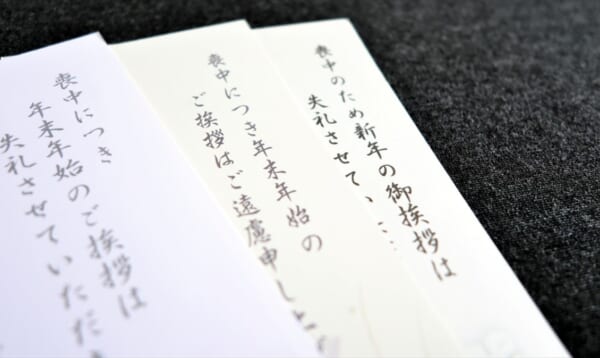 喪中のため新年の御挨拶は
失礼させてい
喪中につき年末年始の
ご挨拶はご遠慮申し上
喪中につき
年末年始のご挨拶は
失礼させていただき